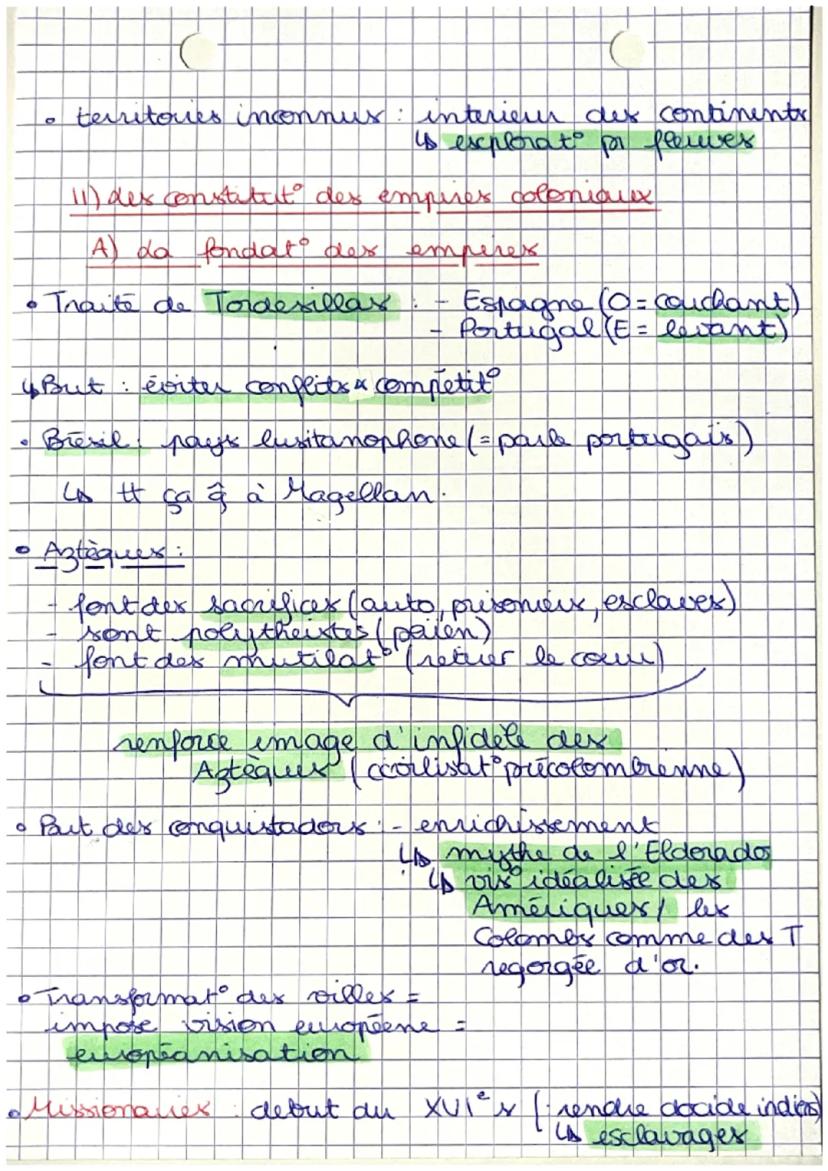 • territories inconnus : interieur des continents
↳ explorat° pr fleuves
II) des constitut° des empires coloniaux
A) La fondat° des empires
• Traité de Tordesillas : - Espagne (O = couchant)
- Portugal (E = levant)
↳ But : éviter conflits & compétit°
• Brésil : pays lusitanophone (= parle portugais)
↳ tt ça ĝ à Magellan.
• Aztèques :
- font des sacrifices (auto, prisoniers, esclaves)
- sont polythéistes (païen)
- font des mutilat° (retirer le cœur)
renforce image d'infidèle des
Aztèques (civilisat° précolombienne)
• But des conquistadors : - enrichissement
↳ mythe de l'Eldorado
↳ vis° idéalisée des
Amériques / les
Colombs comme des T
regorgée d'or.
• Transformat° des villes =
impose vision européene =
européanisation
• Missionaires : debut du XVIe s (: rendre docide indiens)
↳ esclavages